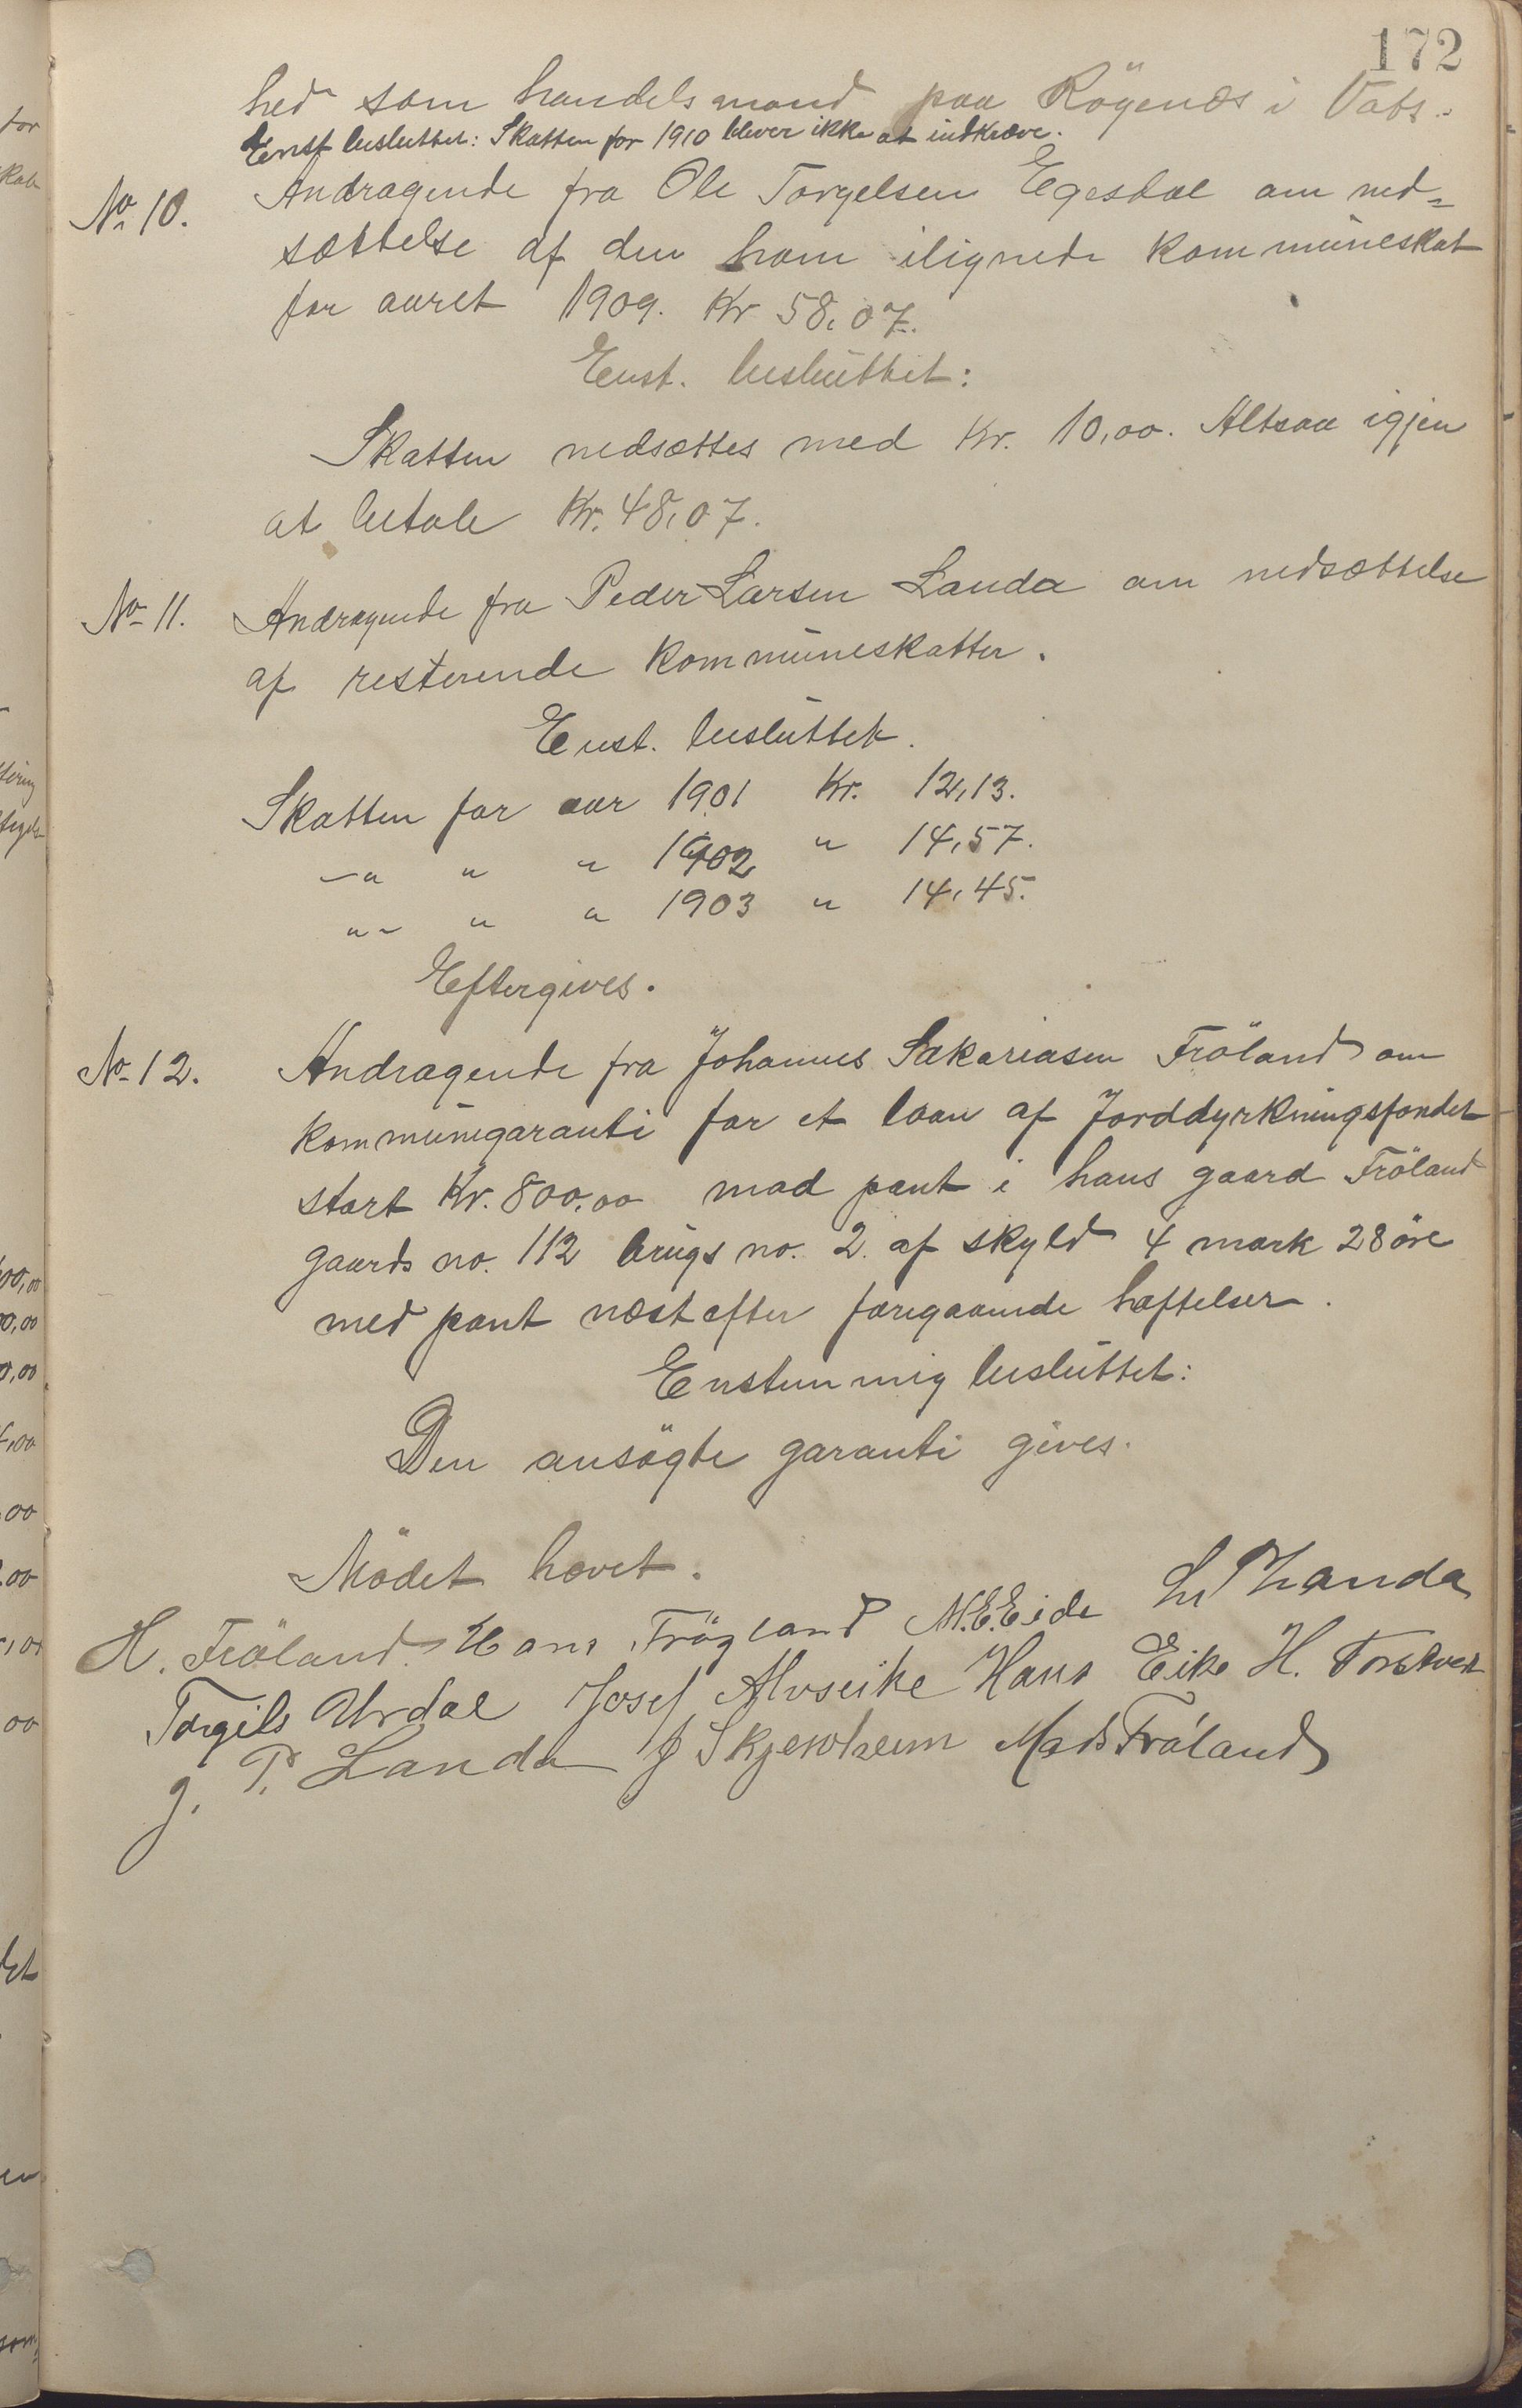 172
hed som handelsmand paa Rögenæs i Vats.
Enst besluttet: Skatten for 1910 blever ikke at indkræve.
No 10. Andragende fra Ole Torgelsen Egesdal om ned=
sættelse af den ham ilignede kommuneskat
for aaret 1909. Kr 58,07.
Enst. besluttet:
Skatten nedsættes med Kr. 10,00. Altsaa igjen
at betale Kr. 48,07.
No 11. Andragende fra Peder Larsen Landa om nedsættelse
af resterende kommuneskatter.
Enst. besluttet.
Skatten for aar 1901 Kr. 12,13.
-" " " 1902 " 14,57.
"- " " 1903 " 14,45.
Eftergives.
No 12. Andragende fra Johannes Sakariasen Fröland om
kommunegaranti for et laan af Jorddyrkningsfondet
stort Kr. 800,00 mod pant i hans gaard Fröland
gaards no. 112 brugs no. 2. af skyld 4 mark 28 öre
med pant næst efter foregaaende hæftelser.
Enstemmig besluttet:
Den ansögte garanti gives.
Mödet hævet.
H. Fröland. Hans Frögland M.E.Eide Landa
Torgils Urdal Josef Alvseike Hans Eike H.
g. P. Landa J Skjervheim Mads Fröland